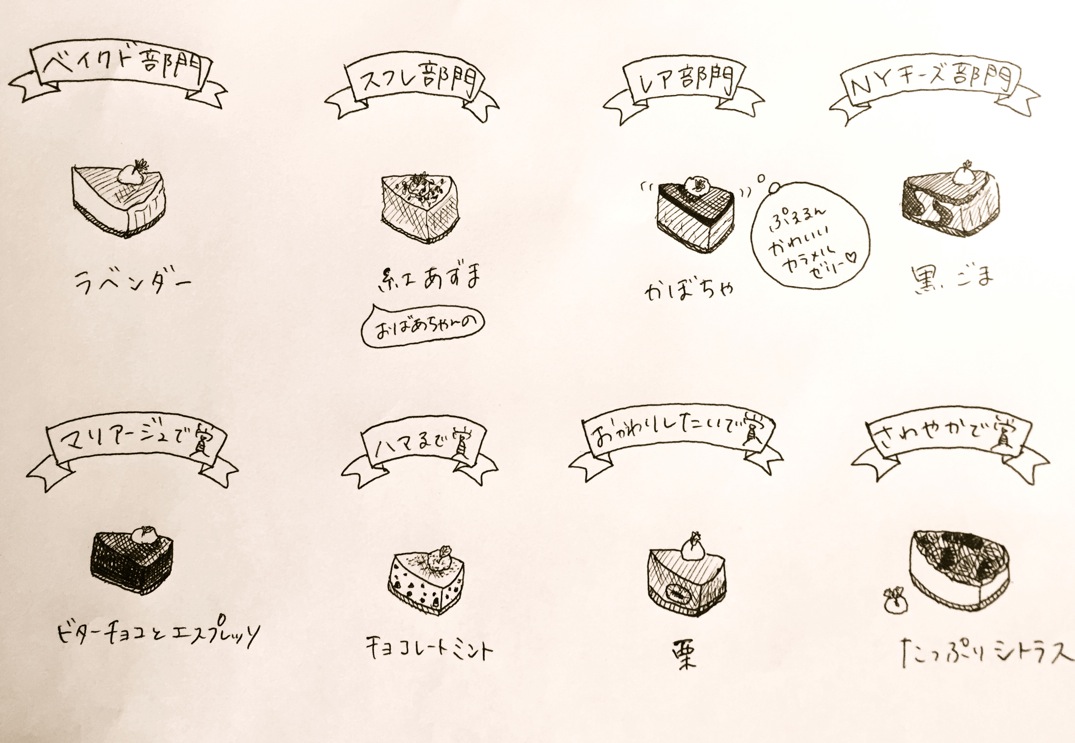 ベイクド部門
スフレ部門
レア部門
NYチーズ部門
ラベンダー
紅あずま
おばあちゃんの
かぼちゃ
ぷるるん
かわいい
カラメル
ゼリー♡
黒ごま
マリアージュで賞
ハマるで賞
おかわりしたいで賞
さわやかで賞
ビターチョコとエスプレッソ
チョコレートミント
栗
たっぷりシトラス